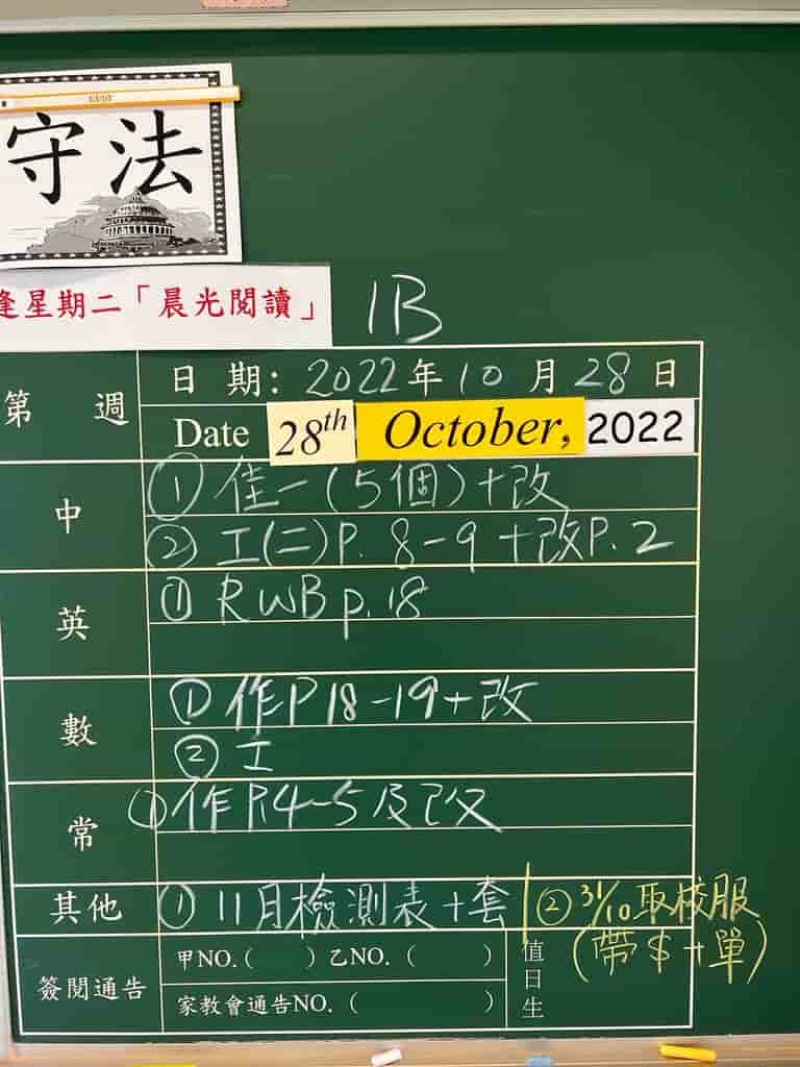 守法
逢星期二「晨光閱讀」
1B
第 週
日 期: 2022年10月28日
Date 28th October, 2022
中
① 佳一(5個)+改
② 工(二)P. 8-9 +改P.2
英
① RWB p.18
數
① 作P18-19+改
② 工
常
① 作P.4-5及改
其他
① 11月檢測表+套
② 31/10取校服
(帶$+單)
簽閱通告
甲NO.( ) 乙NO.( )
家教會通告NO.( )
值日生